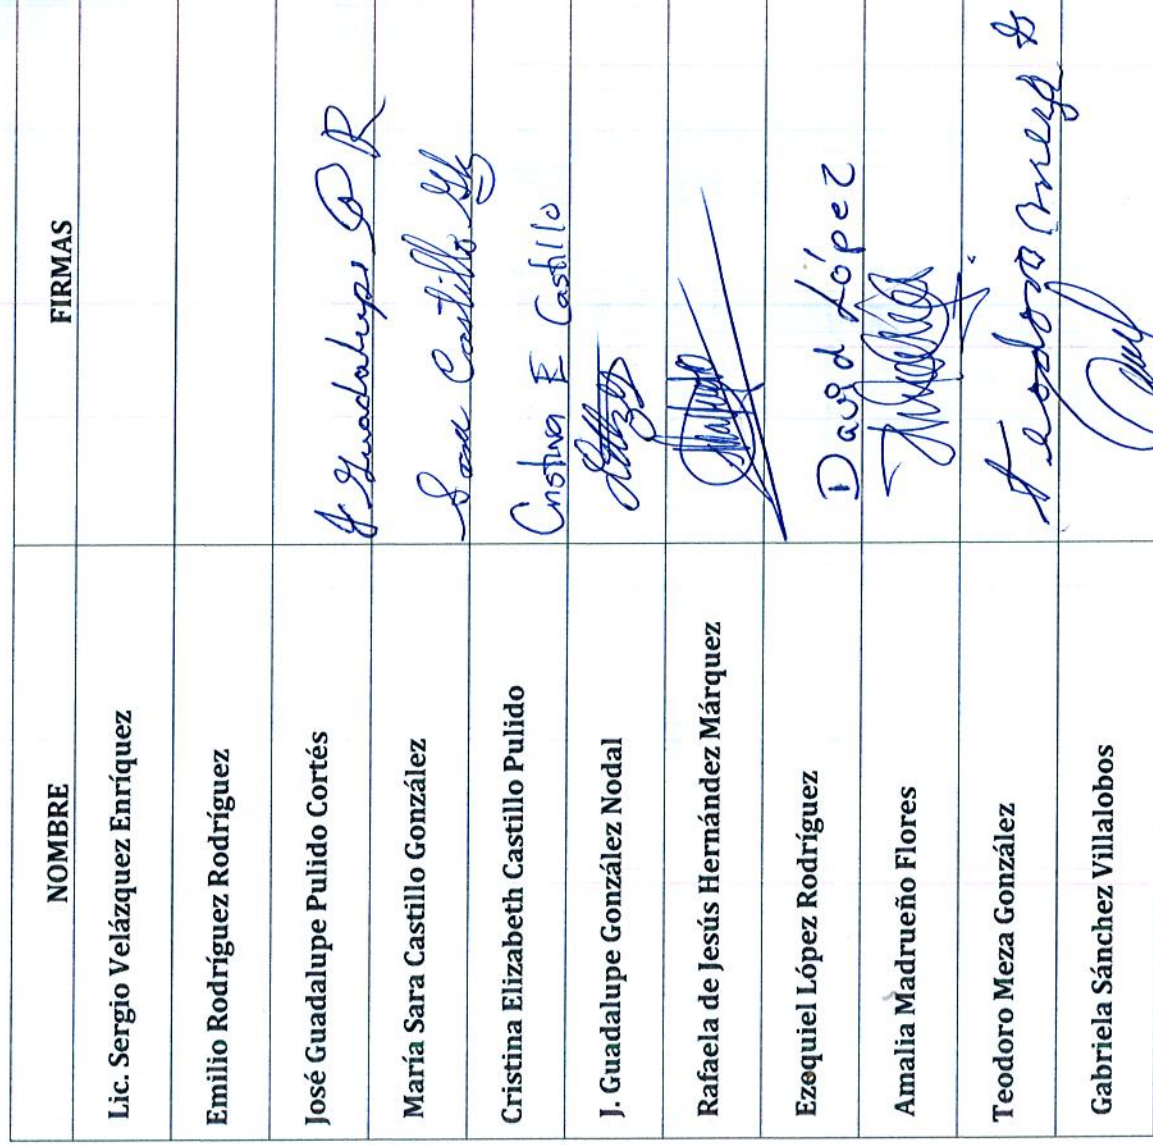 NOMBRE FIRMAS
Lic. Sergio Velázquez Enríquez
Emilio Rodríguez Rodríguez
José Guadalupe Pulido Cortés J Guadalupe P R
María Sara Castillo González Sara Castillo
Cristina Elizabeth Castillo Pulido Cristina E Castillo
J. Guadalupe González Nodal
Rafaela de Jesús Hernández Márquez
Ezequiel López Rodríguez David López
Amalia Madrueño Flores
Teodoro Meza González Teodoro
Gabriela Sánchez Villalobos